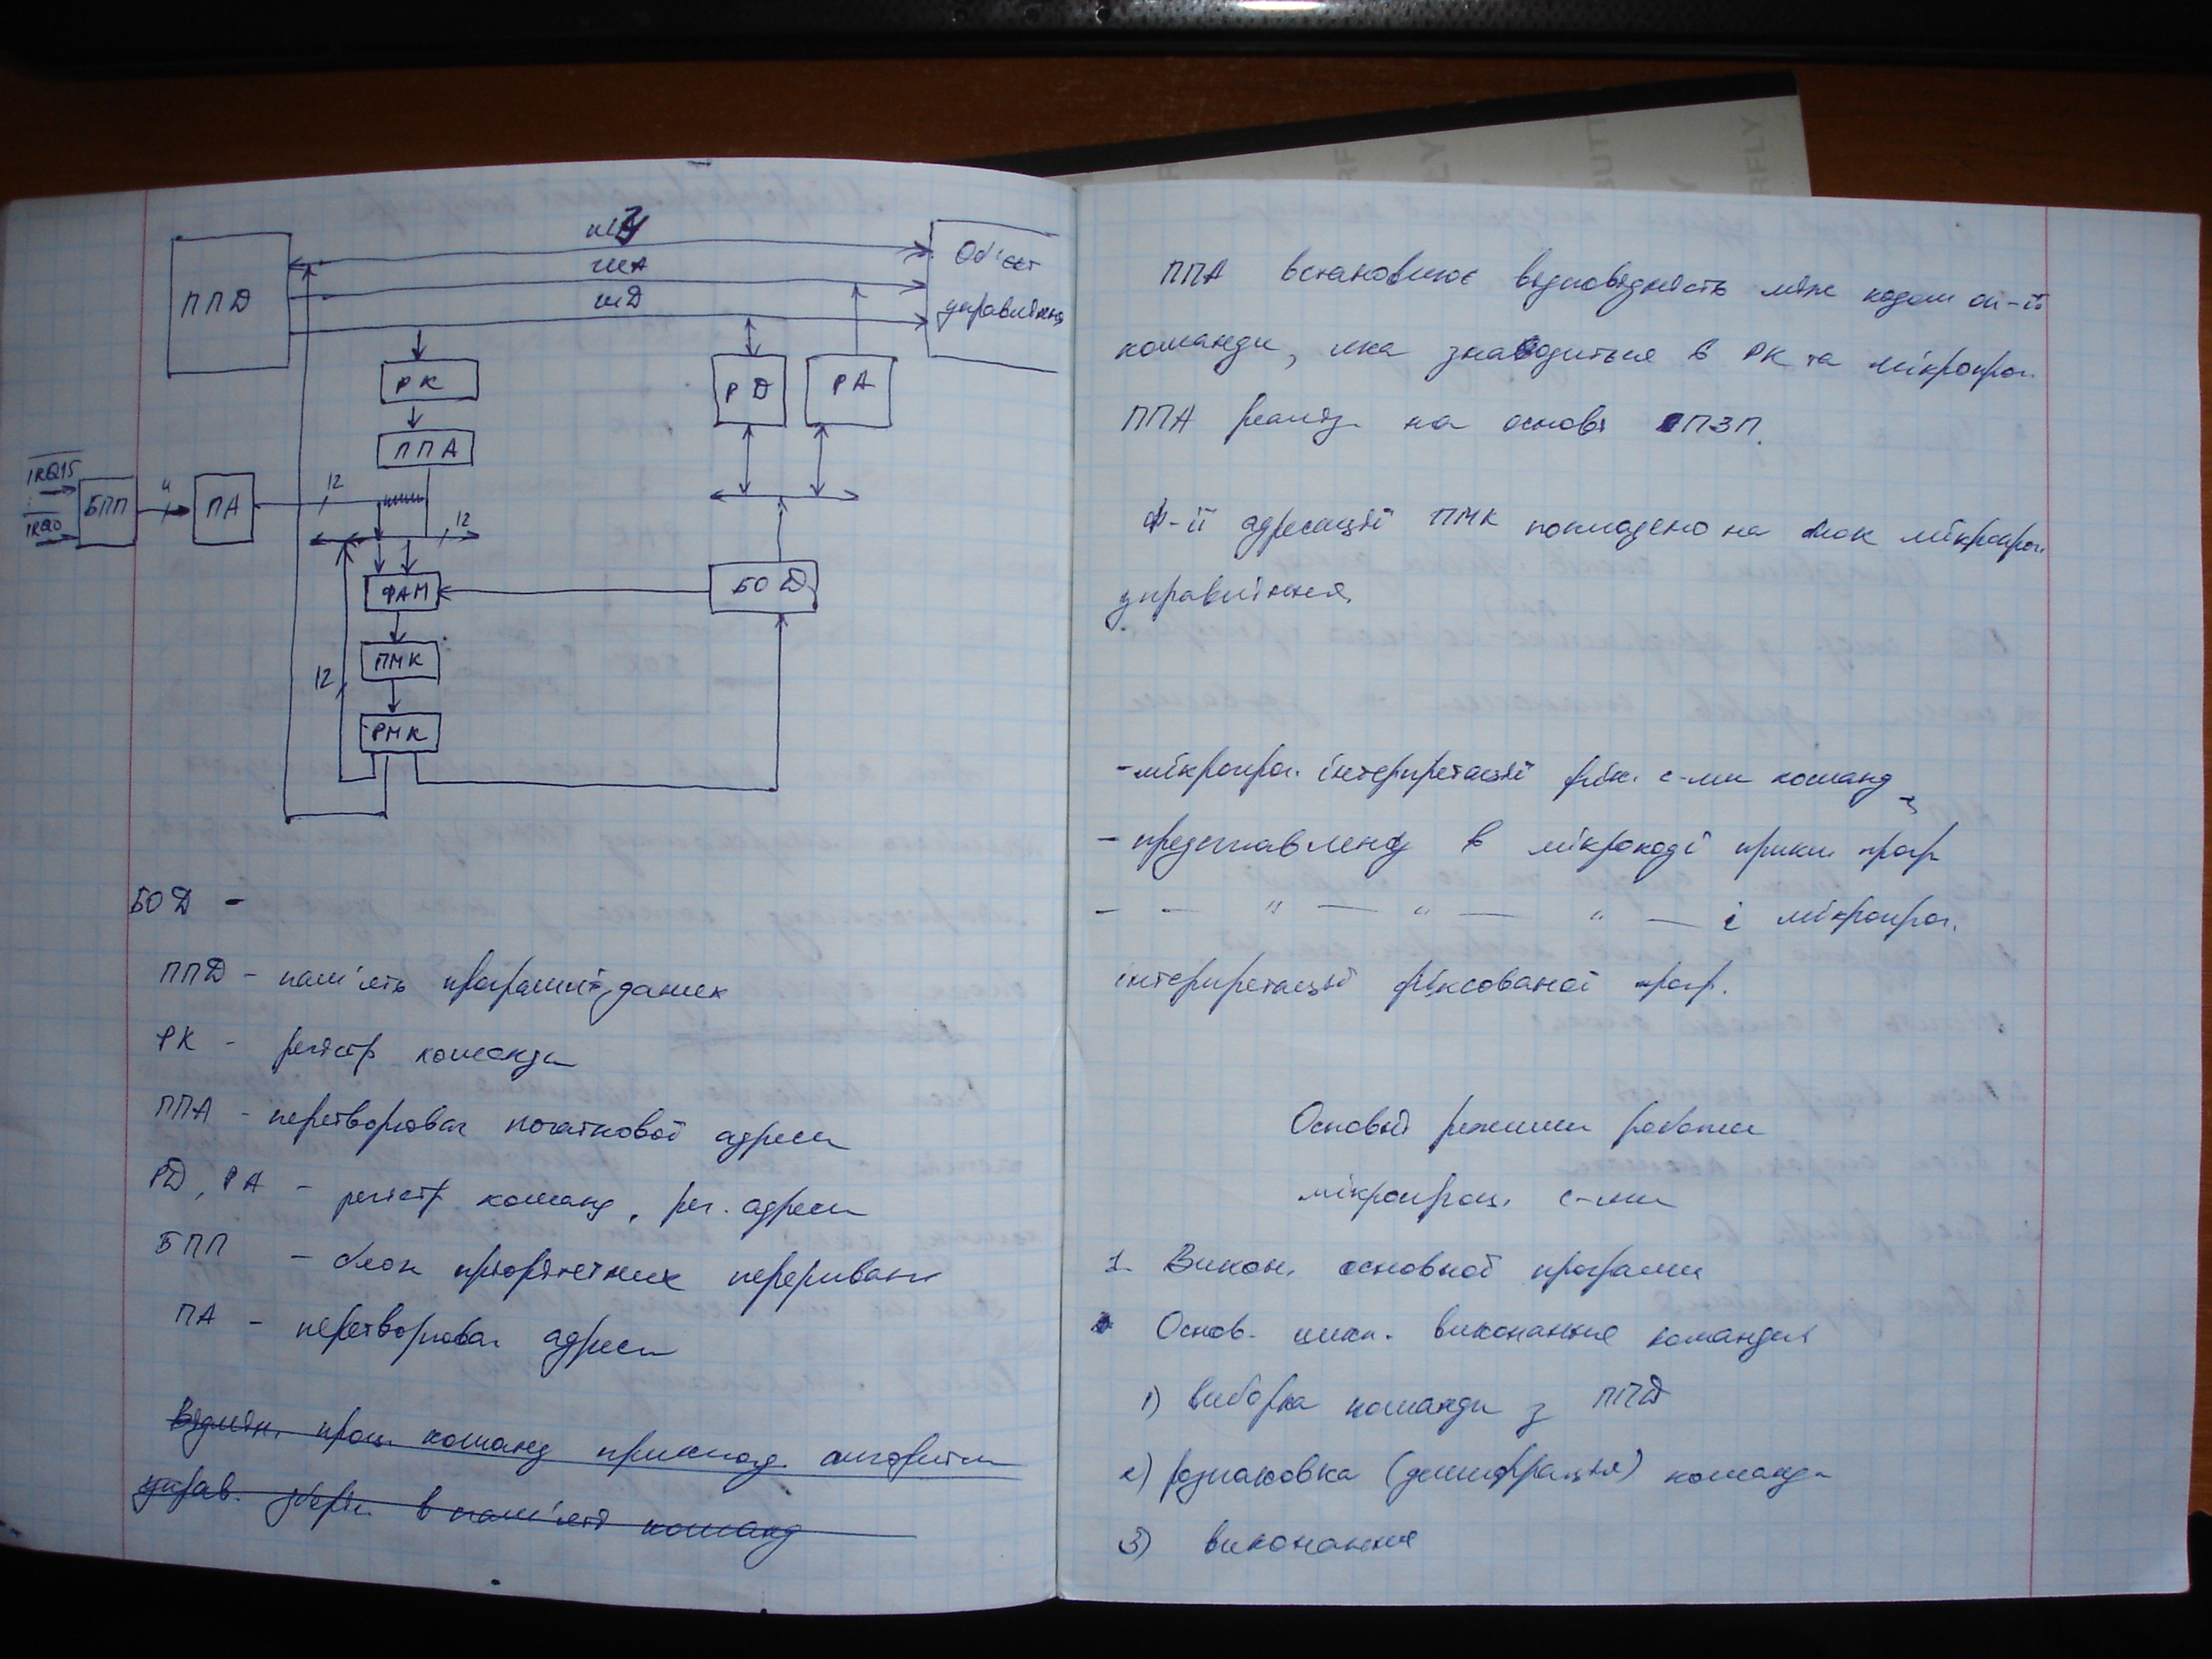 ША
ШД
ППД
Об'єкт
управління
РК
РД
РА
ППА
IRQ15
IRQ0
БПП
4
ПА
12
12
ФАМ
БОД
ПМК
12
РМК
БОД -
ППД - пам'ять програм і даних
РК - регістр команди
ППА - перетворювач початкової адреси
РД, РА - регістр команд, рег. адреси
БПП - блок пріорітетних переривань
ПА - перетворювач адреси
Відмін. проц. команд приклад. алгоритм
управ. зберіг. в пам'яті команд
ППА встановлює відповідність між кодом оп-ії
команди, яка знаходиться в РК та мікропрог.
ППА реаліз. на основі ПЗП.
Ф-ії адресації ПМК покладено на блок мікропрог.
управління.
- мікропрог. інтерпретації фік. с-ми команд
- представлену в мікрокоді прикл. прогр
- — " — " — " — і мікропрог.
інтерпретації фіксованої прогр.
Основні режими роботи
мікропроц. с-ми
1. Викон. основної програми
Основ. цикл. виконання команди
1) виборка команди з ППД
2) розпаковка (дешифрація) команди
3) виконання